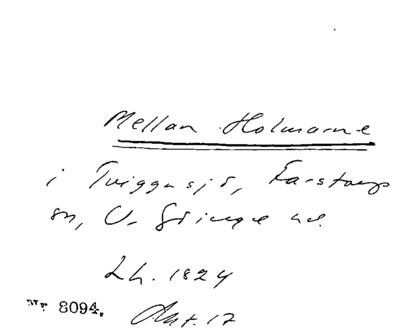 Mellan Holmarne
i Tviggasjö, Farstorps
sn, V. Göinge hd.
Lh. 1824
Nr 8094. Akt. 17